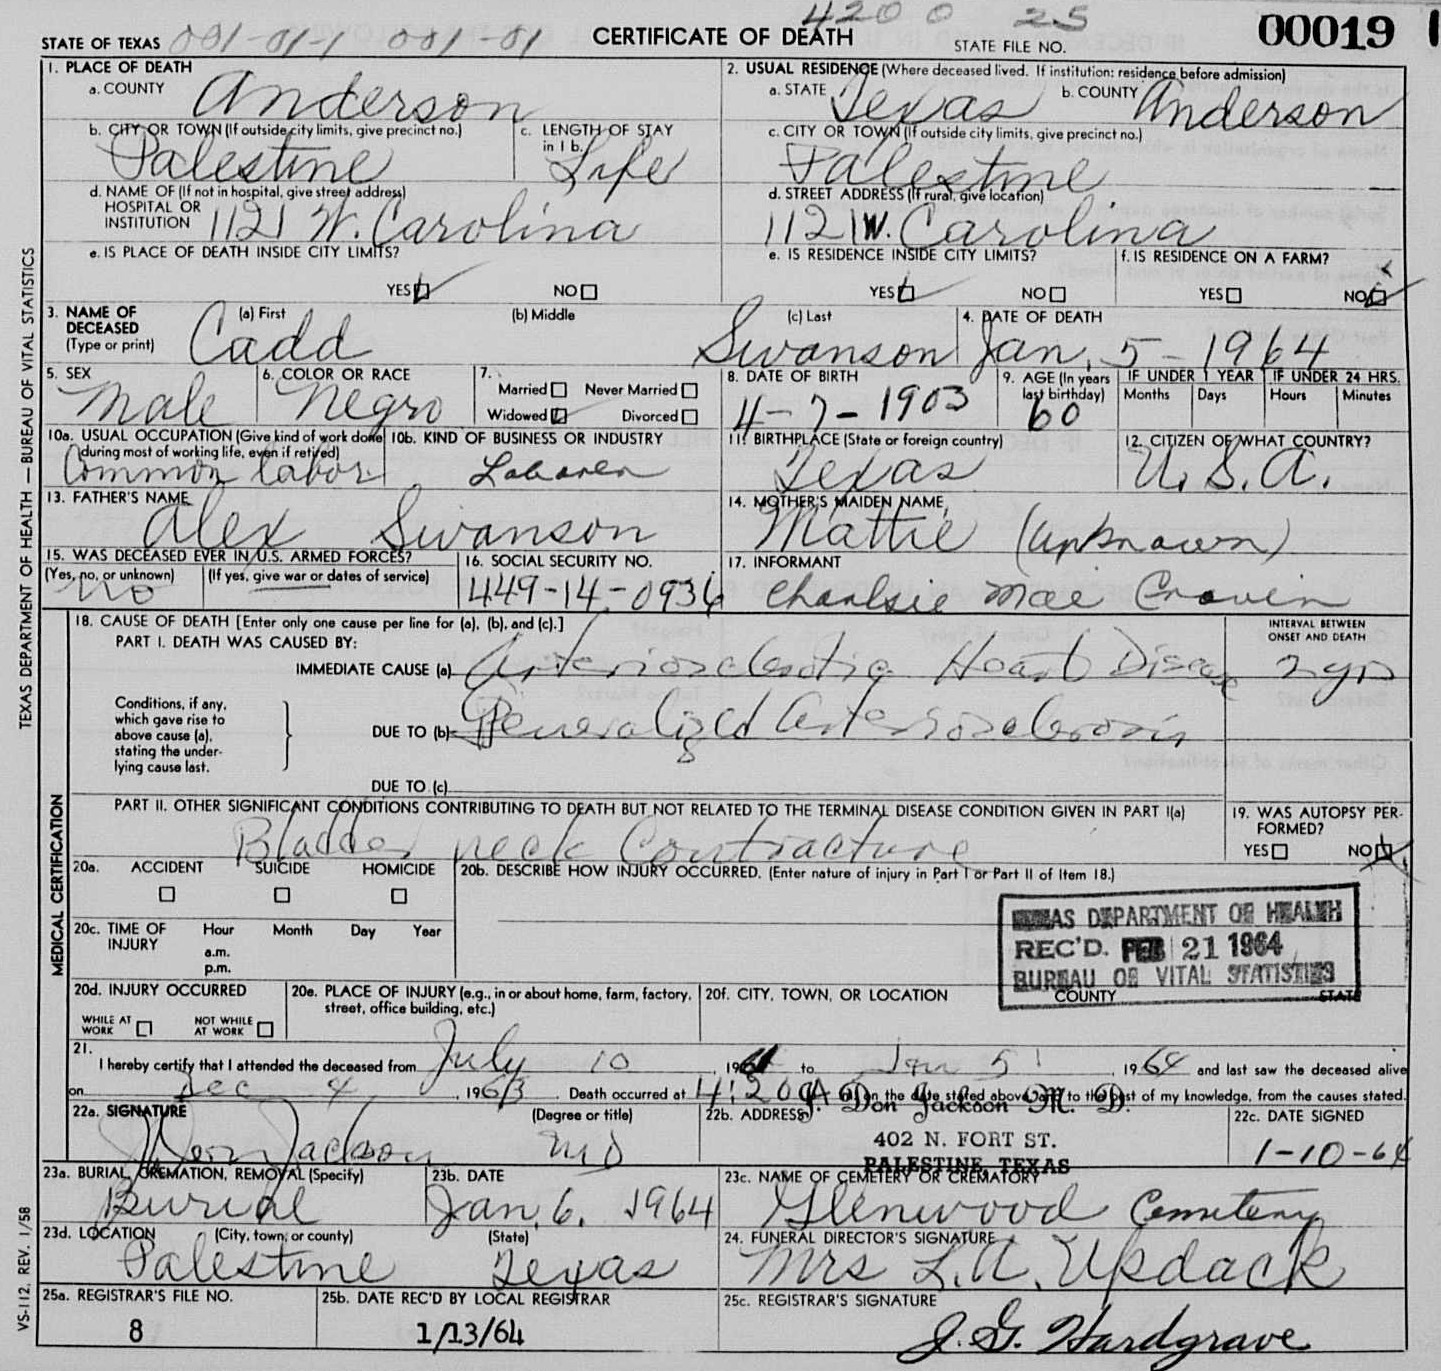 4200 25
STATE OF TEXAS 001-01-1 001-01 CERTIFICATE OF DEATH STATE FILE NO. 00019
1. PLACE OF DEATH
a. COUNTY Anderson
2. USUAL RESIDENCE (Where deceased lived. If institution: residence before admission)
a. STATE Texas b. COUNTY Anderson
b. CITY OR TOWN (If outside city limits, give precinct no.) Palestine
c. LENGTH OF STAY in 1 b. Life
c. CITY OR TOWN (If outside city limits, give precinct no.) Palestine
d. NAME OF (If not in hospital, give street address)
HOSPITAL OR
INSTITUTION 1121 W. Carolina
d. STREET ADDRESS (If rural, give location)
1121 W. Carolina
e. IS PLACE OF DEATH INSIDE CITY LIMITS?
YES NO
e. IS RESIDENCE INSIDE CITY LIMITS?
YES NO
f. IS RESIDENCE ON A FARM?
YES NO
3. NAME OF DECEASED (Type or print)
(a) First (b) Middle (c) Last
Cadd Swanson
4. DATE OF DEATH
Jan. 5 - 1964
5. SEX
Male
6. COLOR OR RACE
Negro
7. Married Never Married
Widowed Divorced
8. DATE OF BIRTH
4-7-1903
9. AGE (In years last birthday)
60
IF UNDER 1 YEAR
Months Days
IF UNDER 24 HRS.
Hours Minutes
10a. USUAL OCCUPATION (Give kind of work done during most of working life, even if retired)
Common labor
10b. KIND OF BUSINESS OR INDUSTRY
Laborer
11. BIRTHPLACE (State or foreign country)
Texas
12. CITIZEN OF WHAT COUNTRY?
U.S.A.
13. FATHER'S NAME
Alex Swanson
14. MOTHER'S MAIDEN NAME
Mattie (unknown)
15. WAS DECEASED EVER IN U.S. ARMED FORCES?
(Yes, no, or unknown) (If yes, give war or dates of service)
No
16. SOCIAL SECURITY NO.
449-14-0936
17. INFORMANT
Charlsie Mae Craven
18. CAUSE OF DEATH [Enter only one cause per line for (a), (b), and (c).]
PART I. DEATH WAS CAUSED BY:
INTERVAL BETWEEN ONSET AND DEATH
IMMEDIATE CAUSE (a) Arteriosclerotic Heart Disease 2 yrs
Conditions, if any, which gave rise to above cause (a), stating the underlying cause last.
DUE TO (b) Generalized Arteriosclerosis
DUE TO (c)
PART II. OTHER SIGNIFICANT CONDITIONS CONTRIBUTING TO DEATH BUT NOT RELATED TO THE TERMINAL DISEASE CONDITION GIVEN IN PART I(a)
Bladder neck Contracture
19. WAS AUTOPSY PERFORMED?
YES NO
20a. ACCIDENT SUICIDE HOMICIDE
20b. DESCRIBE HOW INJURY OCCURRED. (Enter nature of injury in Part I or Part II of Item 18.)
20c. TIME OF INJURY
Hour Month Day Year
a.m.
p.m.
TEXAS DEPARTMENT OF HEALTH
REC'D. FEB 21 1964
BUREAU OF VITAL STATISTICS
20d. INJURY OCCURRED
WHILE AT WORK NOT WHILE AT WORK
20e. PLACE OF INJURY (e.g., in or about home, farm, factory, street, office building, etc.)
20f. CITY, TOWN, OR LOCATION COUNTY STATE
21.
I hereby certify that I attended the deceased from July 10, 1961 to Jan 5, 1964 and last saw the deceased alive
on Dec 4, 1963. Death occurred at 4:20 A m. on the date stated above, and to the best of my knowledge, from the causes stated.
22a. SIGNATURE (Degree or title)
J Don Jackson MD
22b. ADDRESS
J. Don Jackson M. D.
402 N. FORT ST.
PALESTINE, TEXAS
22c. DATE SIGNED
1-10-64
23a. BURIAL, CREMATION, REMOVAL (Specify)
Burial
23b. DATE
Jan. 6, 1964
23c. NAME OF CEMETERY OR CREMATORY
Glenwood Cemetery
23d. LOCATION (City, town, or county) (State)
Palestine Texas
24. FUNERAL DIRECTOR'S SIGNATURE
Mrs L.A. Updack
25a. REGISTRAR'S FILE NO.
8
25b. DATE REC'D BY LOCAL REGISTRAR
1/13/64
25c. REGISTRAR'S SIGNATURE
J. G. Hardgrave
TEXAS DEPARTMENT OF HEALTH — BUREAU OF VITAL STATISTICS
MEDICAL CERTIFICATION
VS-112, REV. 1/58